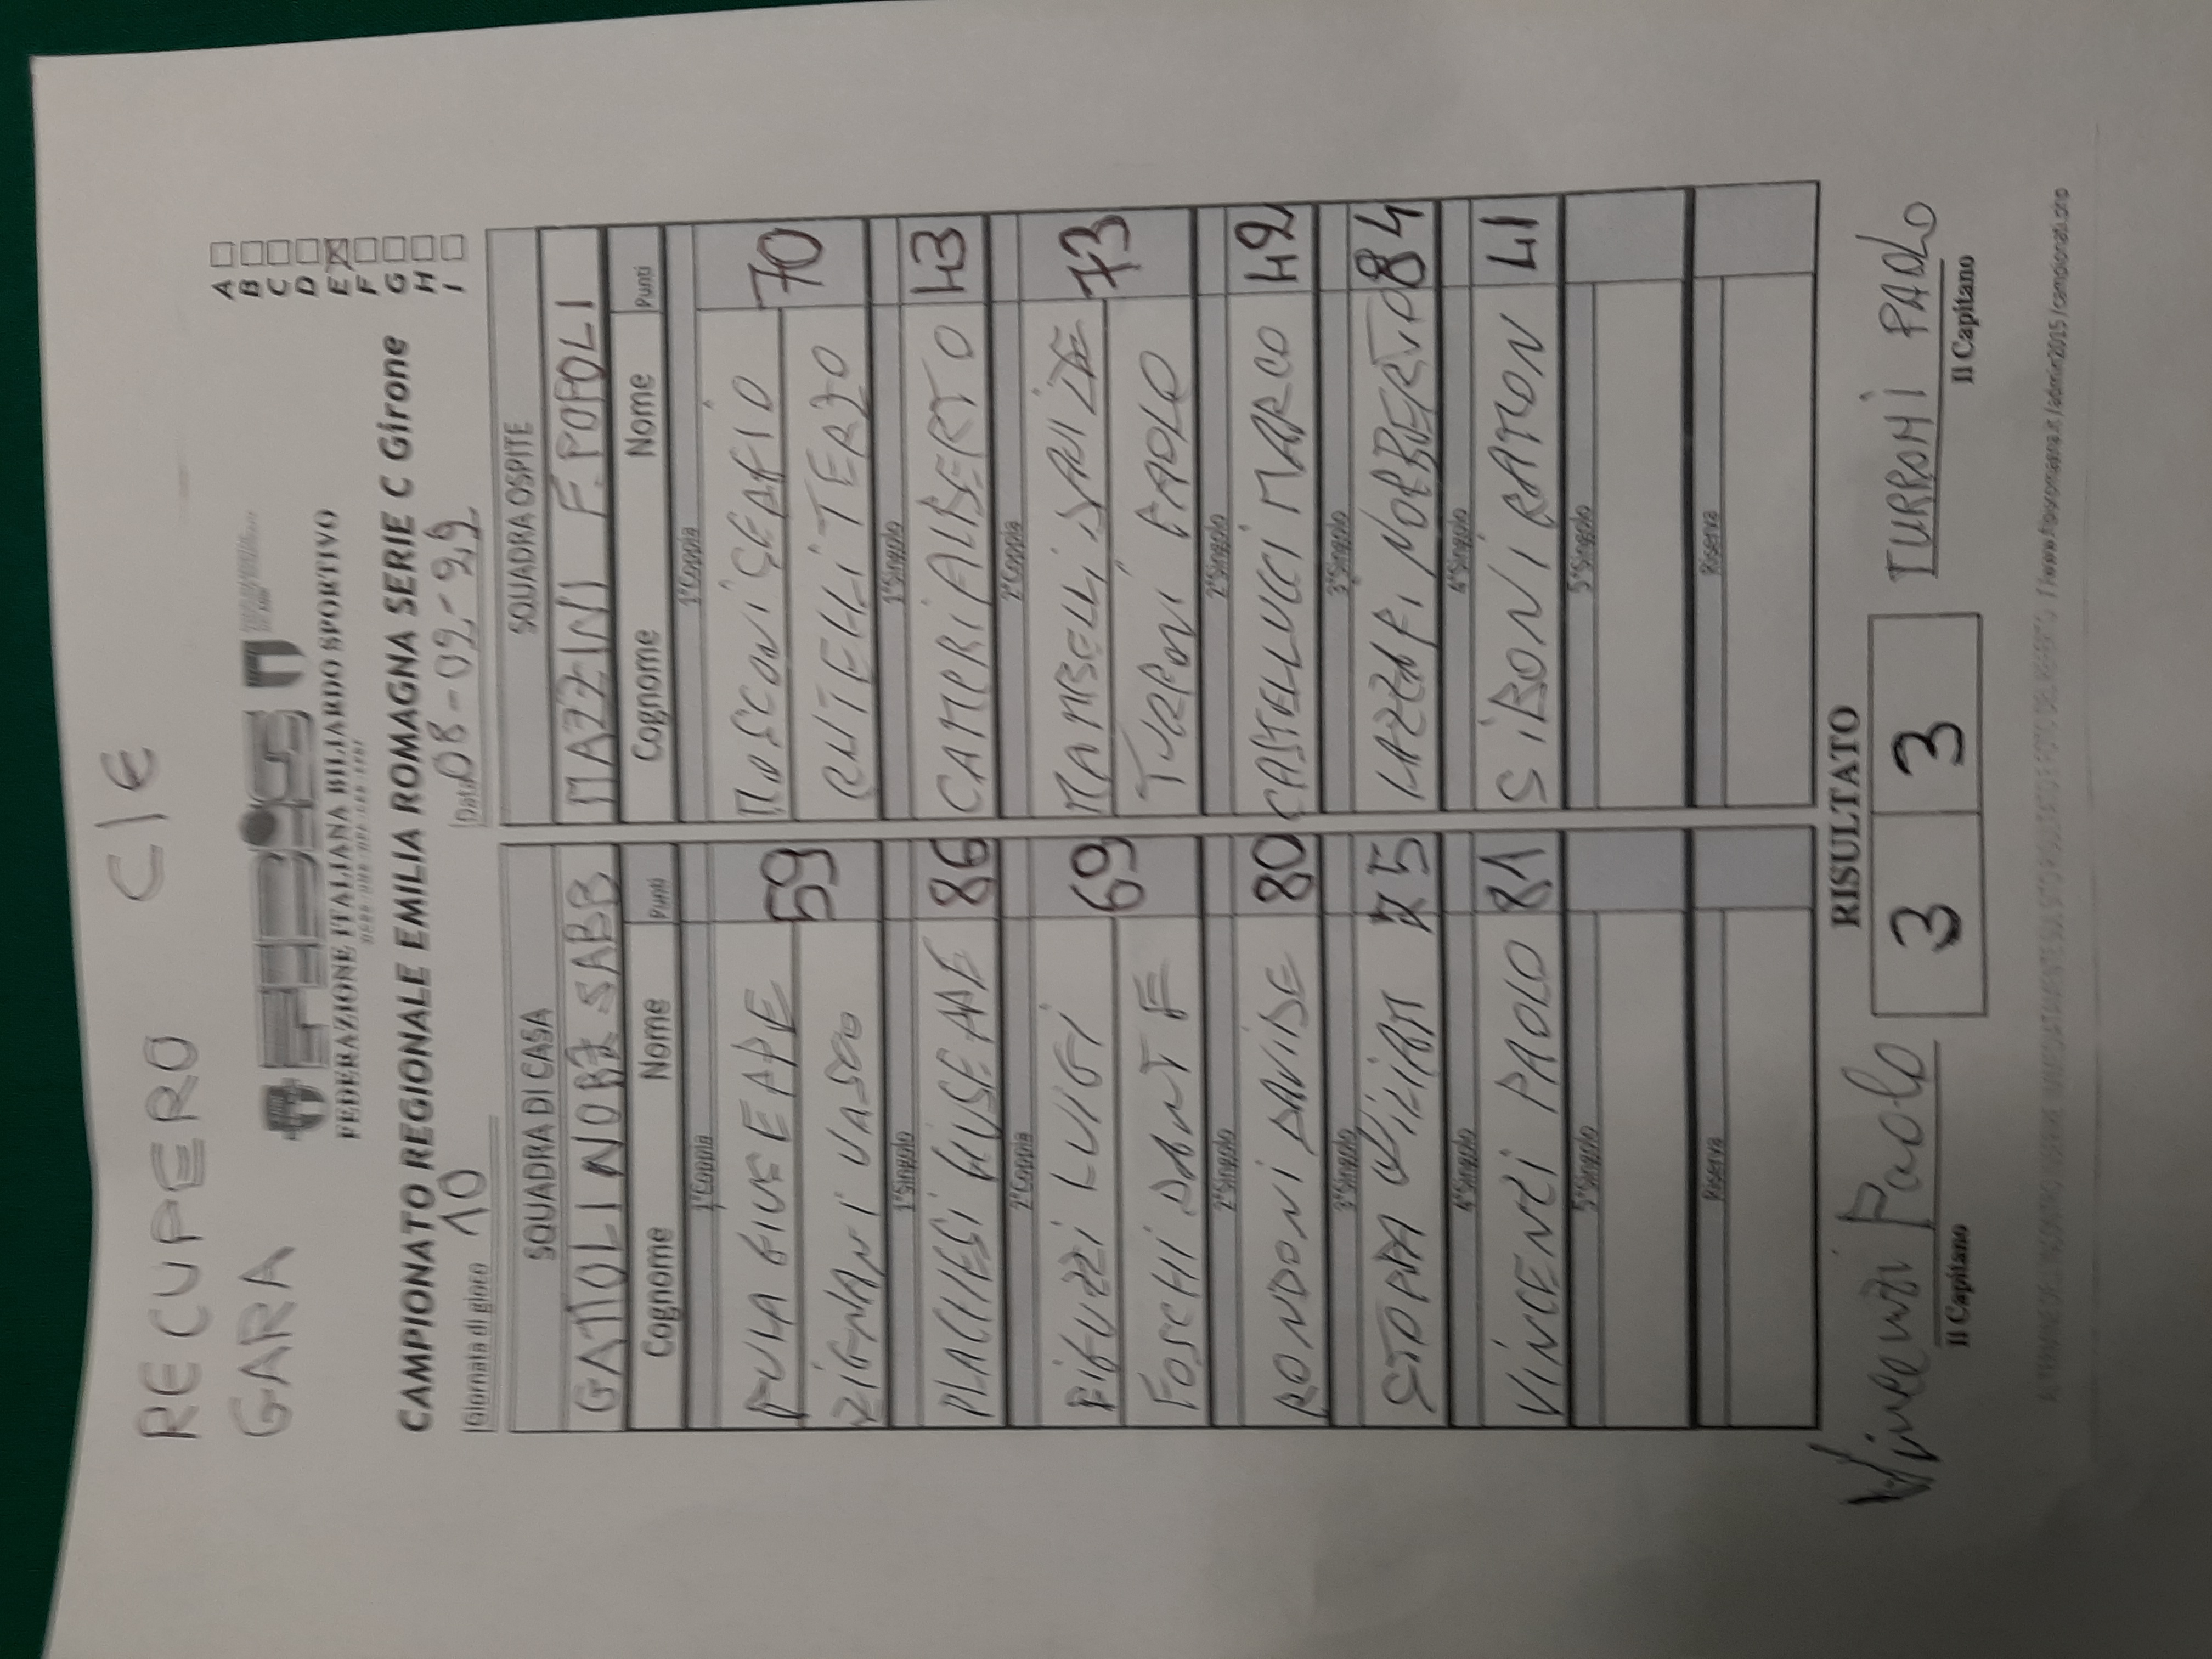 RECUPERO C/E
GARA
FIBiS
FEDERAZIONE ITALIANA BILIARDO SPORTIVO
A
B
C
D
E
F
G
H
I
CAMPIONATO REGIONALE EMILIA ROMAGNA SERIE C Girone
Giornata di gioco 10 Data 08-02-22
SQUADRA DI CASA SQUADRA OSPITE
GATTOLINO B2 SABB MAZZINI F.POPOLI
Cognome Nome Punti Cognome Nome Punti
1°Coppia 1°Coppia
GIUSEPPE 59 MOSCONI SERGIO 70
ZIGNANI VASCO TERZO
1°Singolo 1°Singolo
PLACUZZI GIUSEPPE 86 ALBERTO 43
2°Coppia 2°Coppia
LUIGI 69 MAMBELLI DAVIDE 73
FOSCHI DANTE TURRONI PAOLO
2°Singolo 2°Singolo
RONDONI DAVIDE 80 CASTELLUCCI MARCO 42
3°Singolo 3°Singolo
WILIAM 75 NORBERTO 84
4°Singolo 4°Singolo
VINCENZI PAOLO 81 SIBONI RATION 41
5°Singolo 5°Singolo
Riserva Riserva
RISULTATO
Vincenzi Paolo 3 3 TURRONI PAOLO
Il Capitano Il Capitano